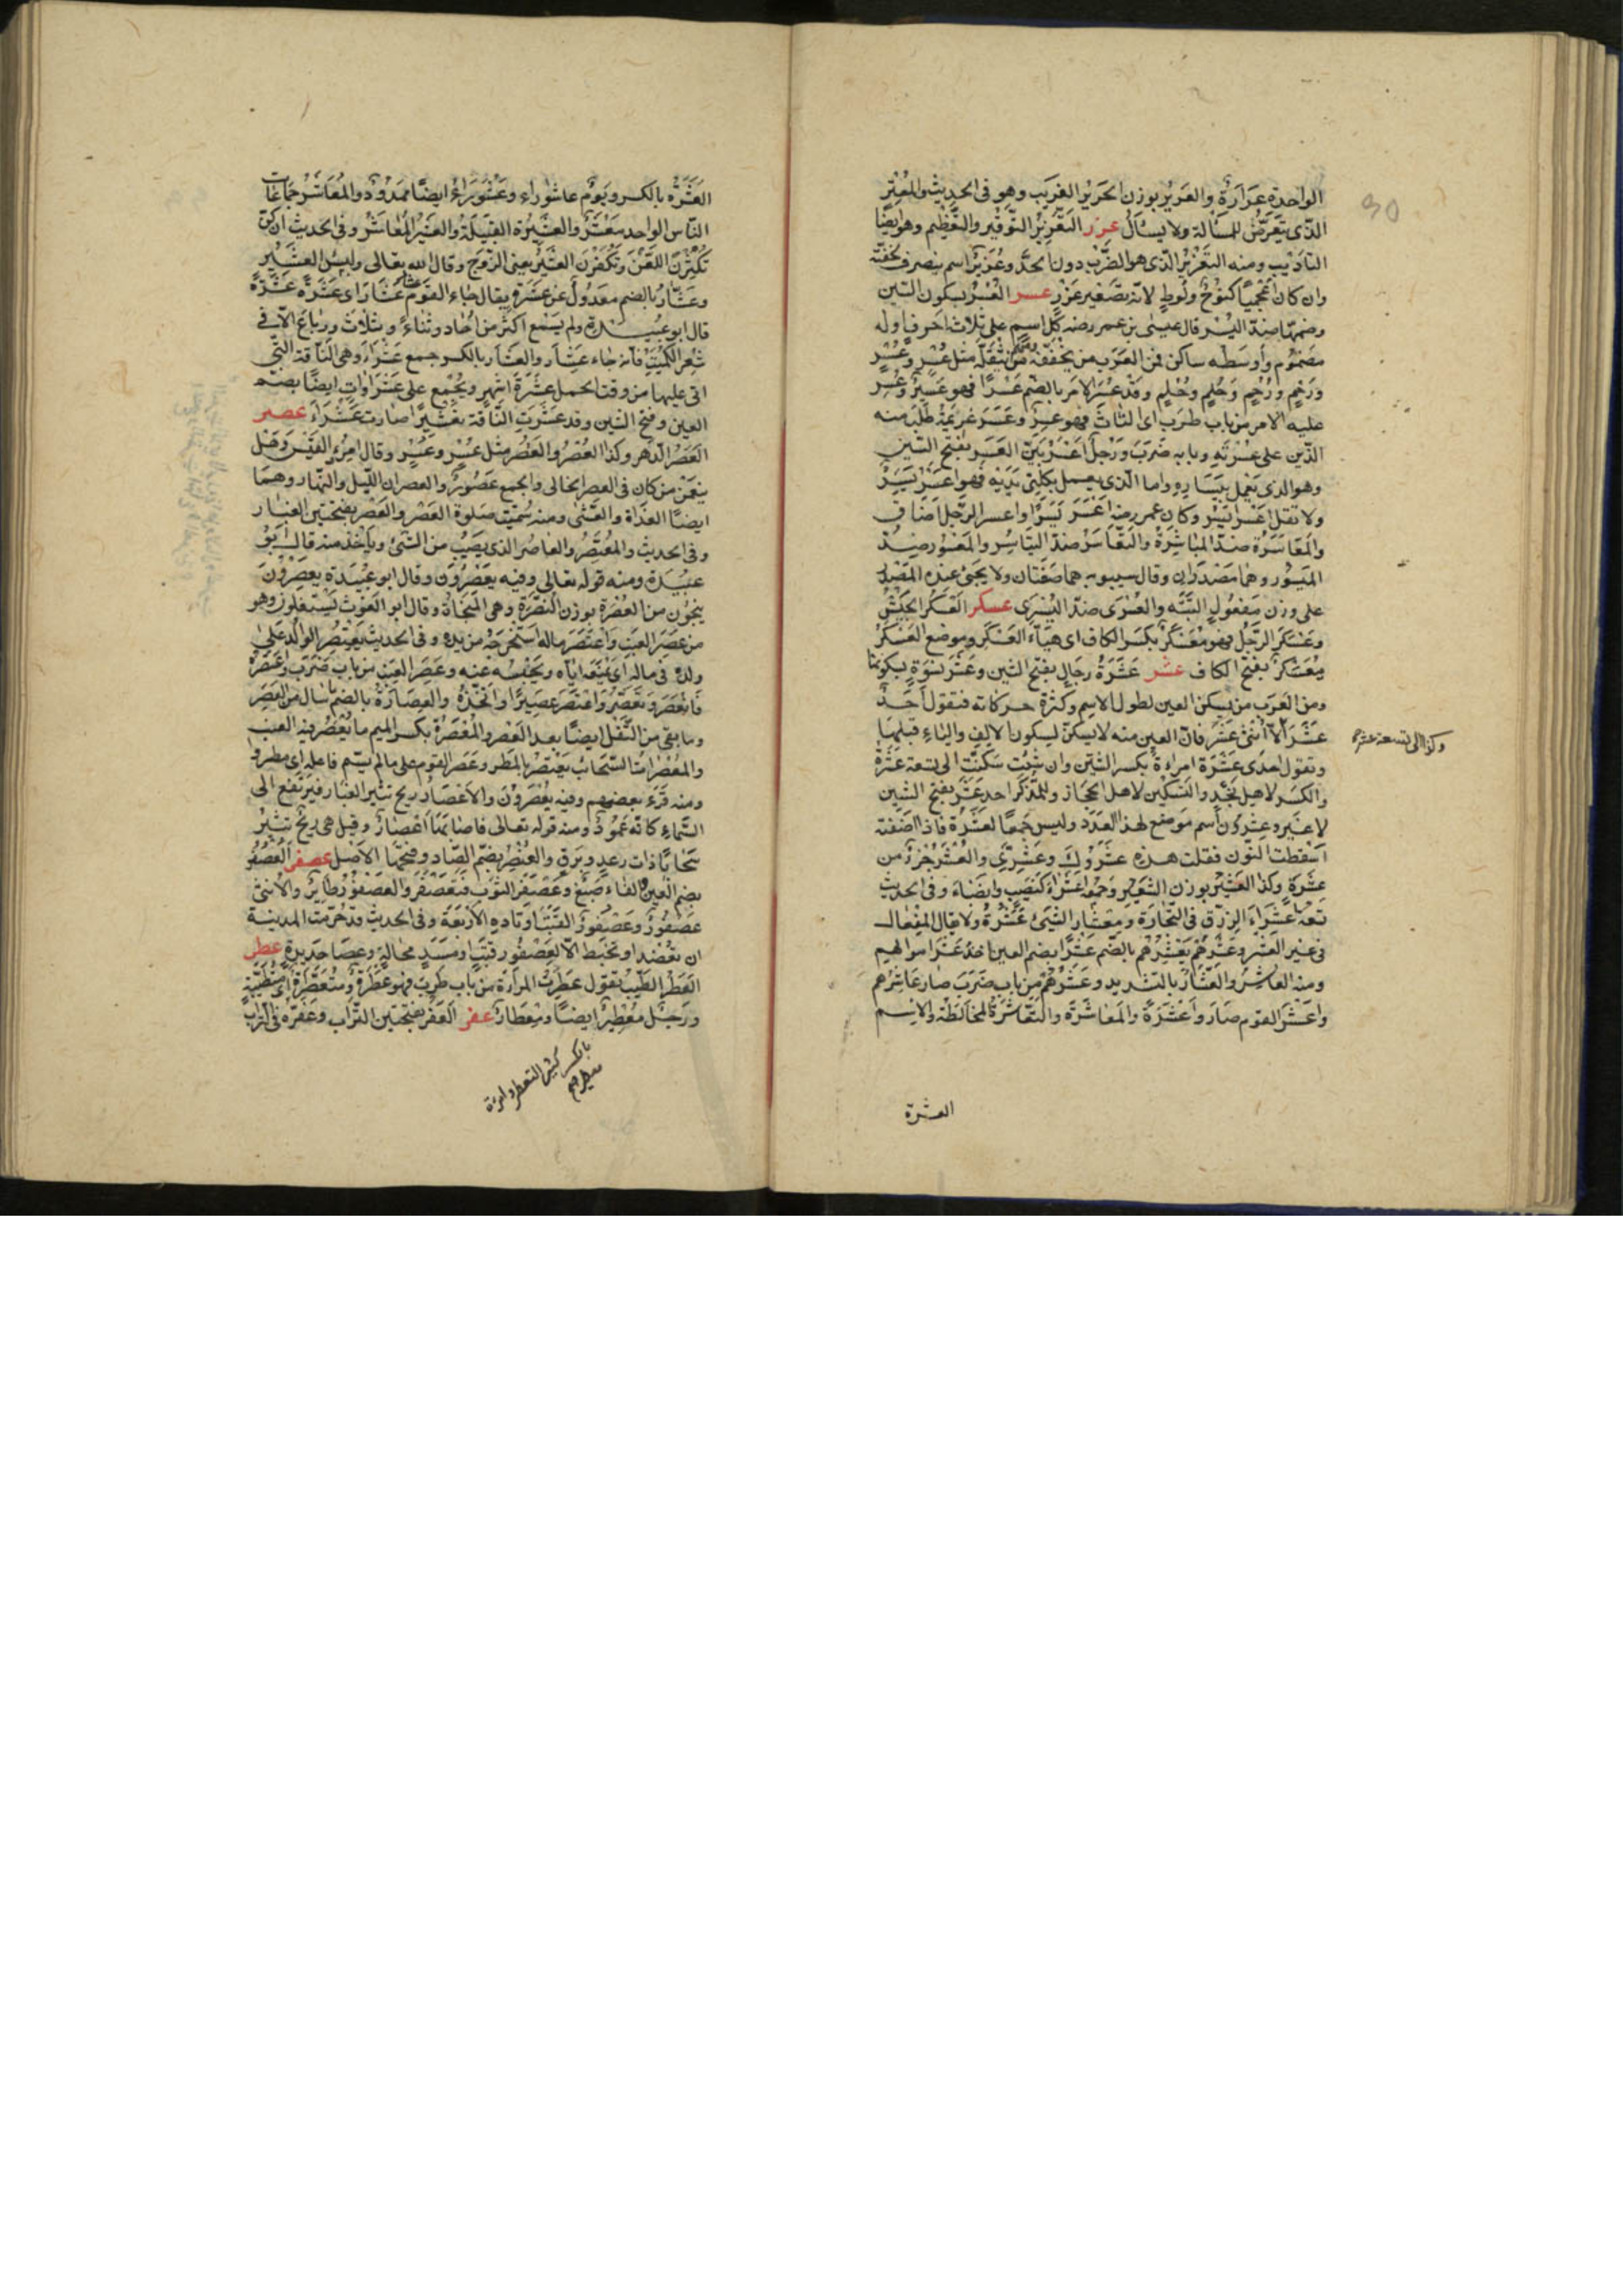 الواحدة عَرَارَة والعَرِيْر بوزن الحَرِيْر الغَرِيب وهو في الحديث والمُعْتَر
الذى يَتَعَرَّض للمسألة ولا يسأَلُ عزر التَّعْزِيْرُ التَّوْقِير والتَّعْظِيم وهو ايضًا
التأدِيب ومنه التَّعْزِيْر الذى هو الضَّرْب دون الحَدّ وعُزَيْر اسم ينصرف لخفّته
وان كان أعْجَمِيًّا كنُوْحٍ ولُوطٍ لانه تصْغير عَزْرٍ عسر العُسْرُ بسكون السّين
وضمها ضدّ اليُسْر قال عيسى بن عمر رضه كل اسم على ثلاث احرف اوله
مضْمُوْم وأوسطه ساكن فمن العَرَب من يُخَفِّفُه ومنهم من يُثَقِّلُه مثل عُسْرٍ وعُسُرٍ
ورُحْمٍ ورُحُمٍ وحُلْمٍ وحُلُمٍ وقد عَسُرَ الامر بالضّم عُسْرًا فهو عَسِيْر وعَسِر
عليه الامر من باب طَرِب اى التاثَ فهو عَسِر وعَسَرَ غريمَهُ طلب منه
الدَّين على عُسْرَتِهِ وبابه ضَرَب ورَجُل أعْسَرُ بَيّن العَسَر بفتح السّين
وهو الذى يَعْمل بيَسَاره واما الّذى يعمل بكِلْتى يَدَيْه فهو أعْسَرُ يَسَر
ولا تقل أعْسَرُ أيْسَر وكان عمر رضه أعْسَرَ يَسَرًا واعسر الرَّجُل اضاق
والمُعَاسَرَة ضدّ المُيَاسَرَة والتَّعَاسُرُ ضدّ التَّيَاسُر والمَعْسُور ضدّ
المَيْسُور وهما مَصْدران وقال سيبويه هما صِفَتَان ولا يجىء عنده المَصْدر
على وزن مَفْعُولٍ البَتَّة والعُسْرَى ضدّ اليُسْرَى عسكر العَسْكَر الجَيْش
وعَسْكَرَ الرَّجُل فهو مُعَسْكِر بكَسر الكاف اى هَيَّأ العَسْكَر وموضع العَسْكَر
مُعَسْكَر بفتح الكاف عشر عَشَرَةُ رِجَالٍ بفتح الشّين وعَشْر نسْوَةٍ بسكونها
ومن العَرَب من يُسكّن العين لطول الاسم وكثرة حركاته فتقول أَحَدَ
عْشَرَ الّا اثْنَىْ عَشَر فانّ العين منه لا يسكن لسكون الالف والياء قبلها
وكذا الى تسعة عشر
وتقول احدى عَشِرَة امراءة بكسر الشّين وان شئت سَكَّنْت الى تسعَ عَشْرَة
والكَسْر لاهل نَجْدٍ والتَّسْكِين لاهل الحجاز وللمُذَكَّر احد عَشَر بفتح الشّين
لا غَيْر وعِشْرُوْن اسم مَوضُوع لهذا العَدَد وليس جَمْعًا لعَشَرَة فاذا اضَفْتَه
اسْقطت النون فقلت هذه عِشْرُوْكَ وعِشْرِيَّ والعُشْر جُزْءٌ من
عَشَرَة وكذا العَشِيْر بوزن الشَّعِيْر وجَمْعه أعْشِرَاء كنَصِيب وانصِبَاء وفى الحديث
تسعة أعْشِرَاء الرِّزْق فى التِّجَارَة ومِعْشَار الشّىء عُشْرُهُ ولا يقال المِفْعال
فى غير العُشْر وعَشَرَهُم يَعْشُرُهُم بالضّم عُشْرًا بضم العين اخذ عُشْر اموالهم
ومنه العاشِر والعَشَّار بالتشديد وعَشَرَهُم من باب ضَرَب صار عاشِرَهُم
واَعْشَر القوم صَارُوا عَشَرَة والمُعَاشَرَة والتَّعَاشُر المُخَالطَة والاسم
العشرة
العِشْرَة بالكسر ويَوْمُ عاشُوراء وعَشُوْرَاءُ ايضًا مَمْدُوْدٌ والمَعَاشِرْ جَمَاعَات
النّاس الواحد مَعْشَر والعَشِيْرَة القَبِيْلَة والعَشِيْر المُعَاشِرْ وفى الحديث انكنّ
تُكْثِرْنَ اللَّعْنَ وتَكْفُرْنَ العَشِيْرَ يعنى الزَّوْجَ وقال الله تعالى ولبِئْس العَشِيْر
وعُشَار بالضم معدُوْلٌ عن عَشَرَةٍ يقال جاء القوم عُشَارَ عُشَارَ اى عَشَرَةً عَشَرَةً
قال ابو عبيد ولم يُسْمَع اكثر من أُحَاد وثُنَاء وثُلَاثَ ورُبَاعَ الّا فى
شِعْر الكُمَيْت فانه جاء عُشَار والعِشَار بالكسر جمع عُشَرَاءَ وهى النَّاقة الّتى
اتى عليها من وقت الحمل عَشَرَة اشهر وتُجْمَع على عُشَرَاوَاتٍ ايضًا بضم
العين وفتح الشّين وقد عَشَّرَتِ النّاقة تَعْشِيْرًا صارت عُشَرَاءَ عصر
العَصْر الدّهر وكذا العُصْرُ والعُصُر مثل عُسْرٍ وعُسُرٍ وقال امرؤ القيس وهَل
يَنْعَمَنْ من كان فى العصر الخالى والجمع عُصُوْر والعصران اللّيل والنّهار وهما
ايضًا الغَدَاة والعَشِى ومنه سُمّيت صَلوة العَصْر والعَصَر بفتحتين الغبار
وفى الحديث والمُعْتَصِر والعاصر الذى يُصيْبُ من الشّىء ويأخذ منه قال ابو
عبيدة ومنه قوله تعالى وفيه يَعْصِرُوْنَ وقال ابو عُبَيْدَة يعصِرُوْنَ
يَنْجُوْن من العُصْرَةِ بوزن النُّصْرَة وهى المَنْجَاة وقال ابو الغَوْث يَسْتَغِلُّون وهو
من عَصْرِ العِنَب واعْتَصَرَ ماله اسْتَخْرَجَه من يده وفى الحديث يَعْتَصِر الوالد على
ولده فى ماله اى يَمْنَعُه ايّاه ويَحْبِسُه عنه وعَصَر العِنَب من باب ضَرَب واعْتَصَرَه
فانْعَصَرَ وتَعَصَّرَ واعْتَصَرَ عَصِيْرًا اتَّخَذَهُ والعُصَارَةُ بالضّم ما سال من العَصْر
وما بقى من الثُّفْل ايضًا بعد العَصْر والمِعْصَرَة بكسر الميم ما يُعْصَر فيه العنب
والمُعْصِرَات السَّحَائب تَعْتَصِر بالمَطَر وعُصِر القوم على مالم يسمّ فاعله اى مطروا
ومنه قَرَءَ بعضهم وفيه يُعْصَرُوْنَ والاعْصَار ريح تثير الغبار فيَرْتَفع الى
السّماء كانه عَمُوْدٌ ومنه قوله تعالى فاصابَهَا اعْصَارٌ وقيل هى رِيْح تثير
سَحَابًا ذات رَعدٍ وبَرقٍ والعُنْصُر بضم الصّاد وفتحها الاَصْل عصفر العُصْفُر
بضم العين والفاء صِبْغٌ وعَصْفَر الثوب فتَعَصْفَرَ والعُصْفُوْر طَائِرٌ والاُنْثى
عُصْفُوْرَة وعُصْفُوْر القَتَب أوتاده الأربعَة وفى الحديث قد حُرّمت المدينة
ان تُعْضَد او تُخْبَط الّا لعُصْفُور قَتَبٍ او مَسَدِ مَحَالةٍ وعَصَا حَدِيدَةٍ عطر
العِطْر الطِّيْب تقول عَطِرَت المراءة من باب طَرِب فهى عَطِرَة ومُتَعَطِّرَة اى مُتَطَيِّبَة
ورَجُل مِعْطِيْر ايضًا ومِعْطَار عفر العَفَر بفتحتين التّراب وعَفَرَه فى التّراب
بالكسر كثير التعطر وامرءة
معطير صح